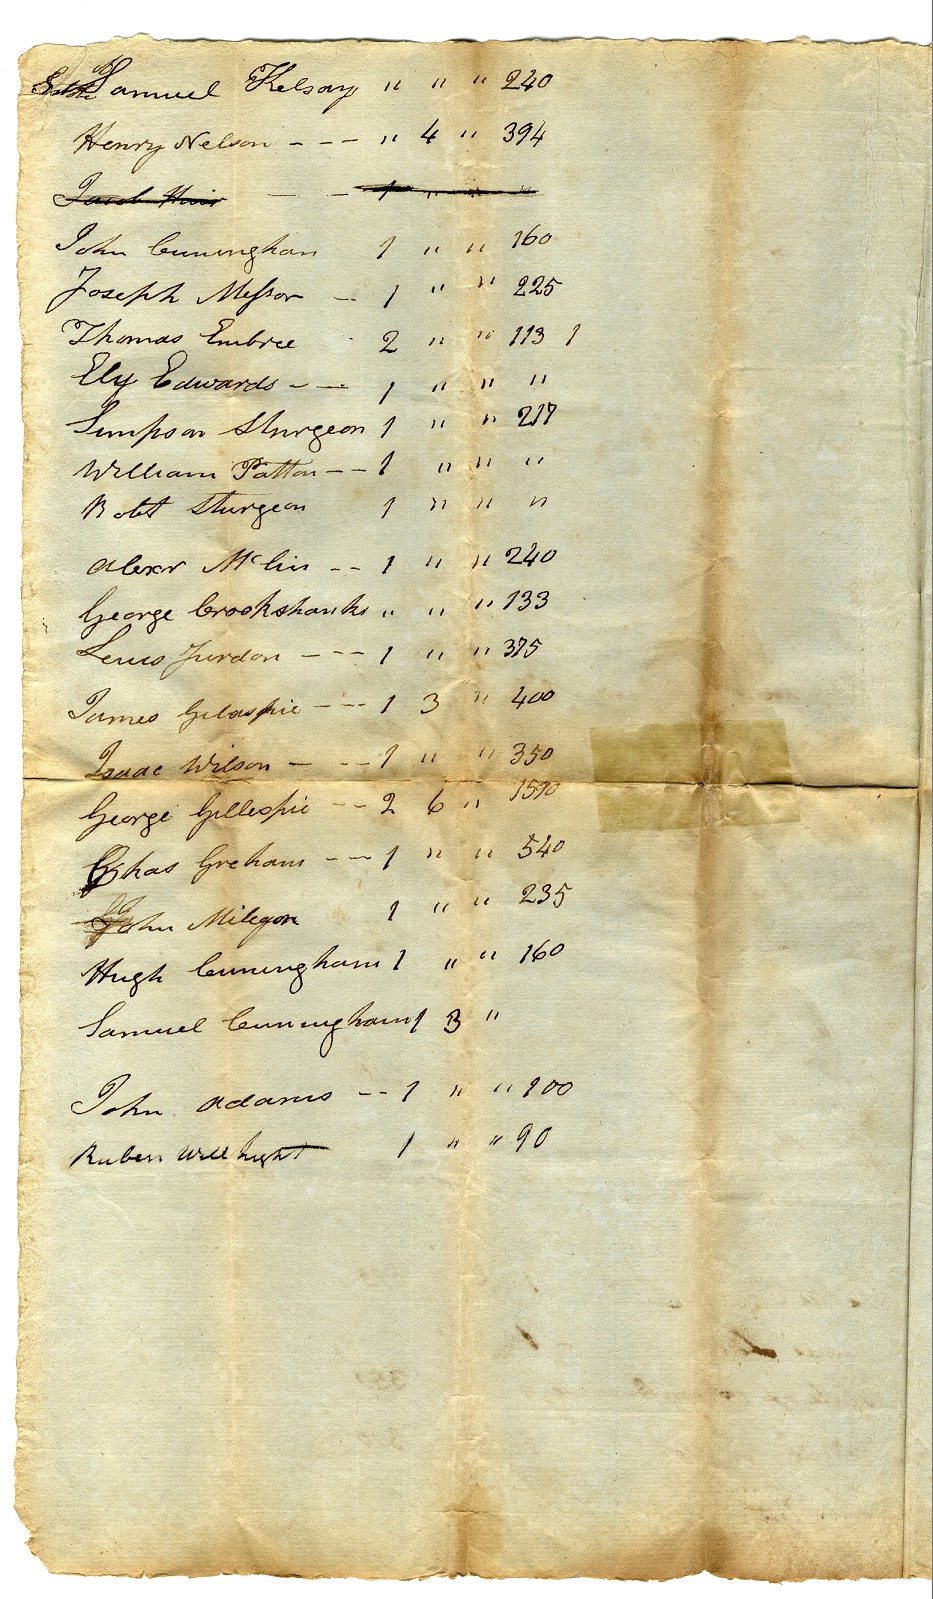 Samuel Kelsay " " " 240
Henry Nelson - - - " 4 " 394
Jacob Hair - - 1 " " "
John Cuningham 1 " " 160
Joseph Messor - 1 " " 225
Thomas Embree 2 " " 113 1
Ely Edwards - - 1 " " "
Simpson Sturgeon 1 " " 217
William Patton - - 1 " " "
Robt Sturgeon 1 " " "
Alexr McLin - - 1 " " 240
George Crookshanks " " " 133
Lewis Jurdon - - - 1 " " 375
James Gilaspie - - - 1 3 " 400
Isaac Wilson - - - 1 " " 350
George Gillespie - - 2 6 " 1590
Chas Greham - - - 1 " " 540
John Miligan 1 " " 235
Hugh Cuningham 1 " " 160
Samuel Cuningham 1 3 "
John Adams - - 1 " " 100
Ruben 1 " " 90